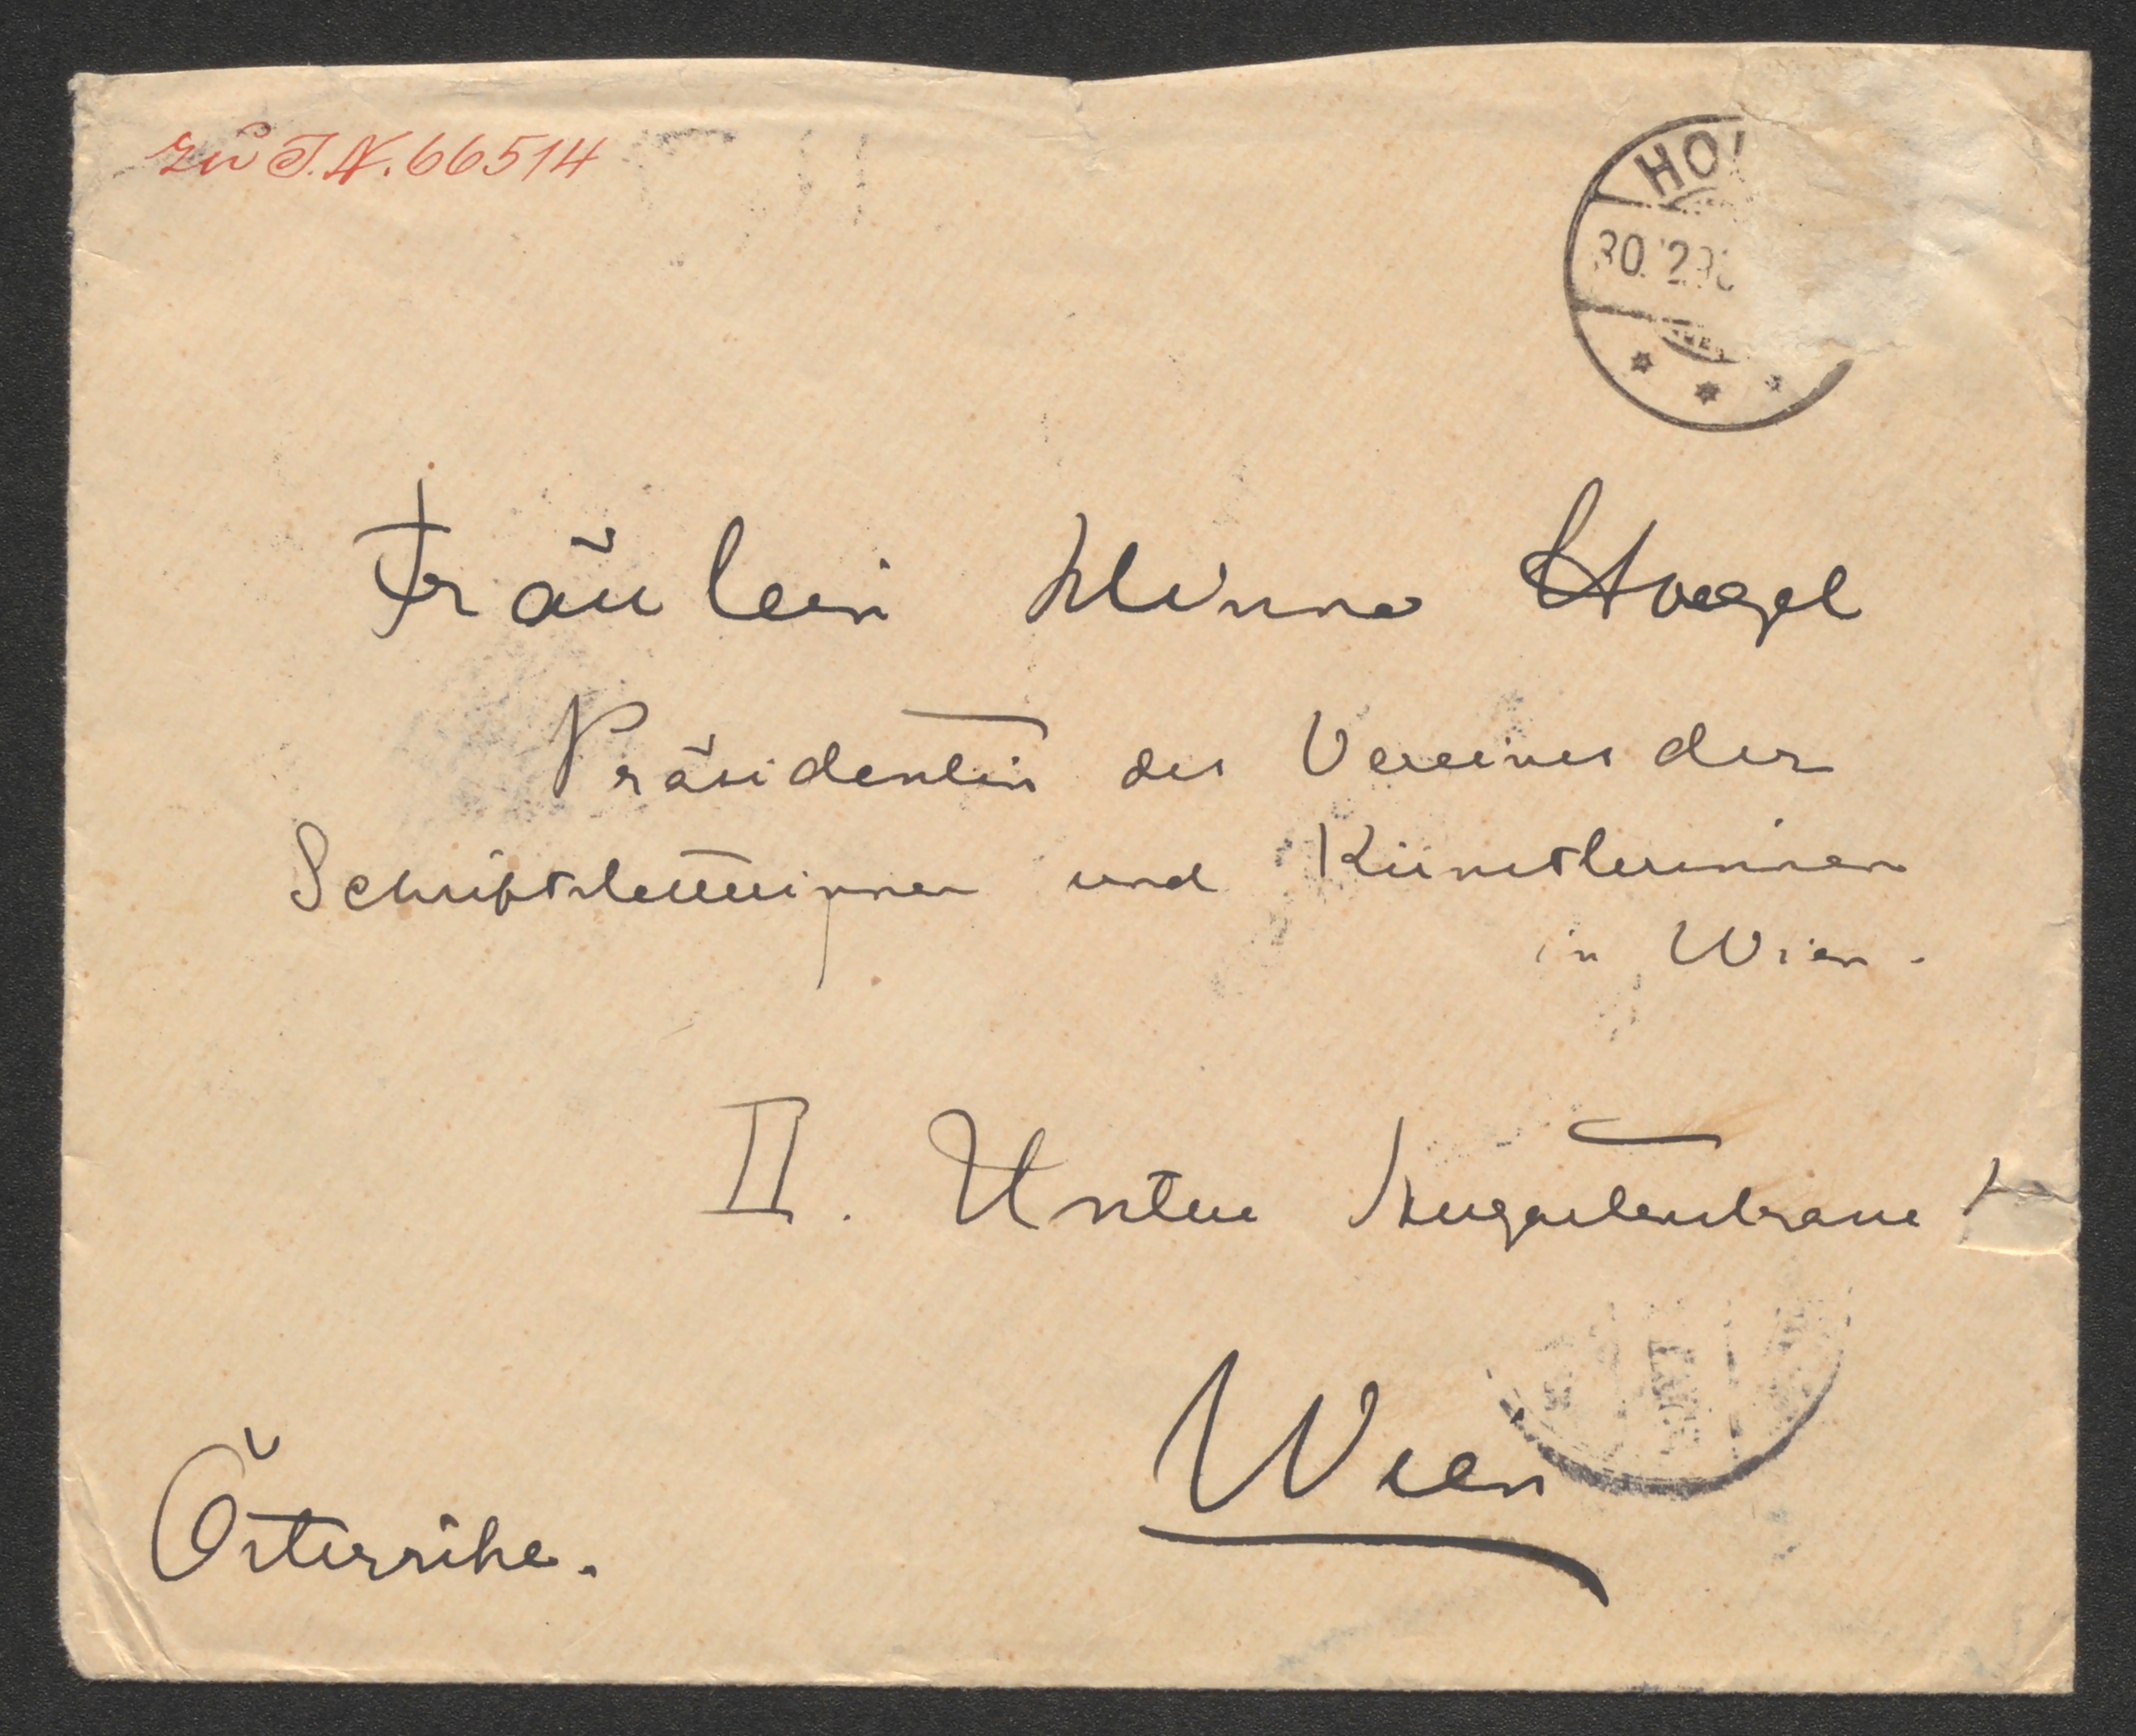 zu I.N. 66514
HO
30.12.9
Fräulein Minna Hoegel
Präsidentin des Vereines der
Schriftstellerinnen und Künstlerinnen
in Wien.
II. Untere Augartenstrasse
Wien
Österrike.